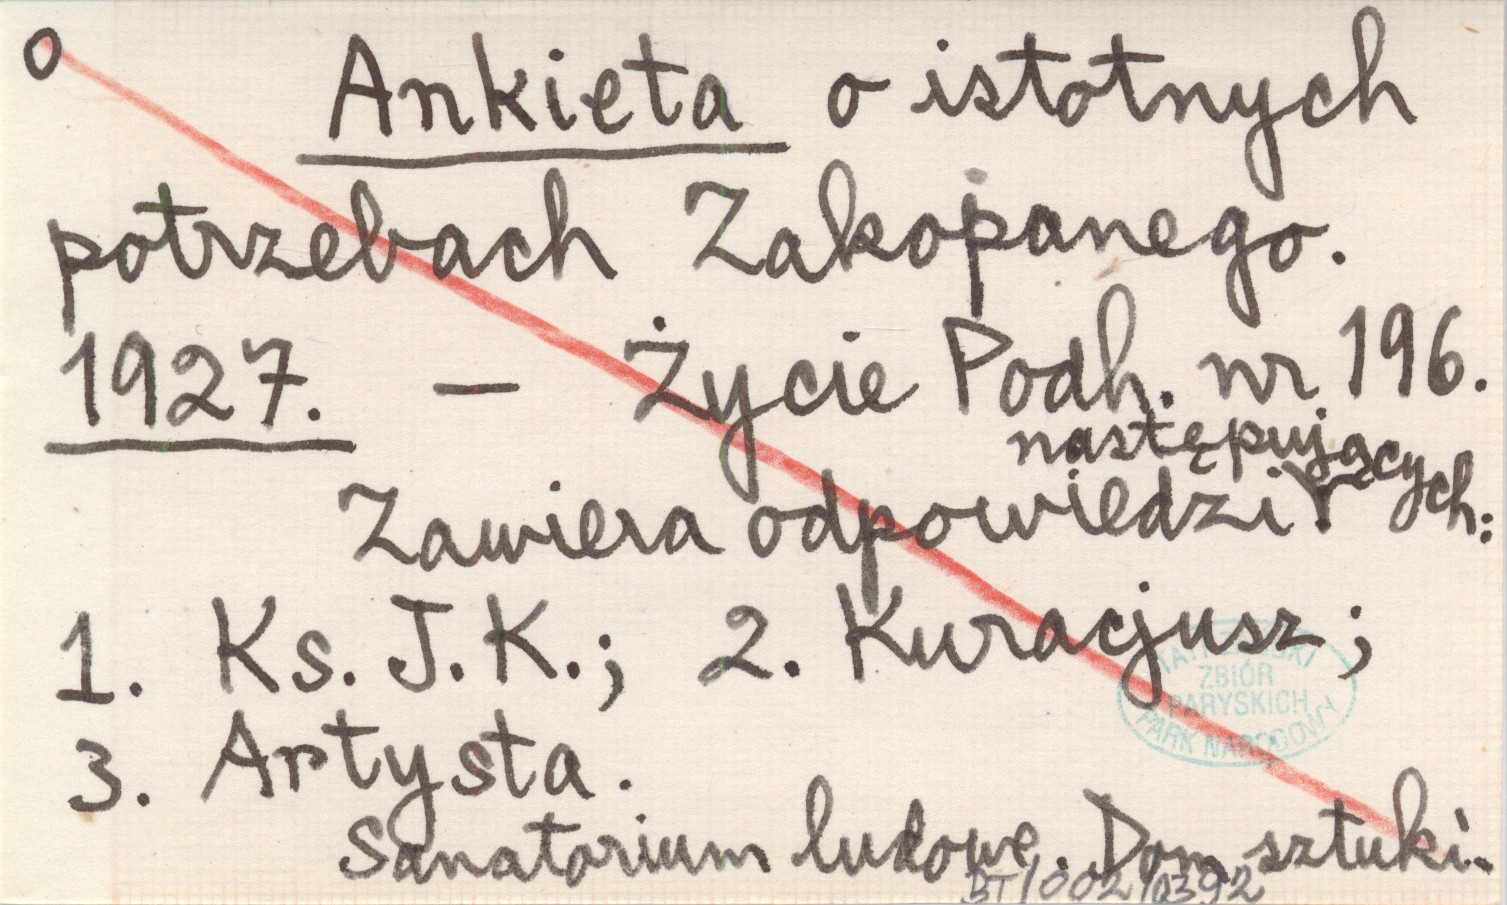 o Ankieta o istotnych
potrzebach Zakopanego.
1927. — Życie Podh. nr 196.
następujących:
Zawiera odpowiedzi
1. Ks. J. K.; 2. Kuracjusz;
3. Artysta.
Sanatorium ludowe. Dom sztuki.
TATRZAŃSKI
ZBIÓR
PARYSKICH
PARK NARODOWY
BT/002/0392